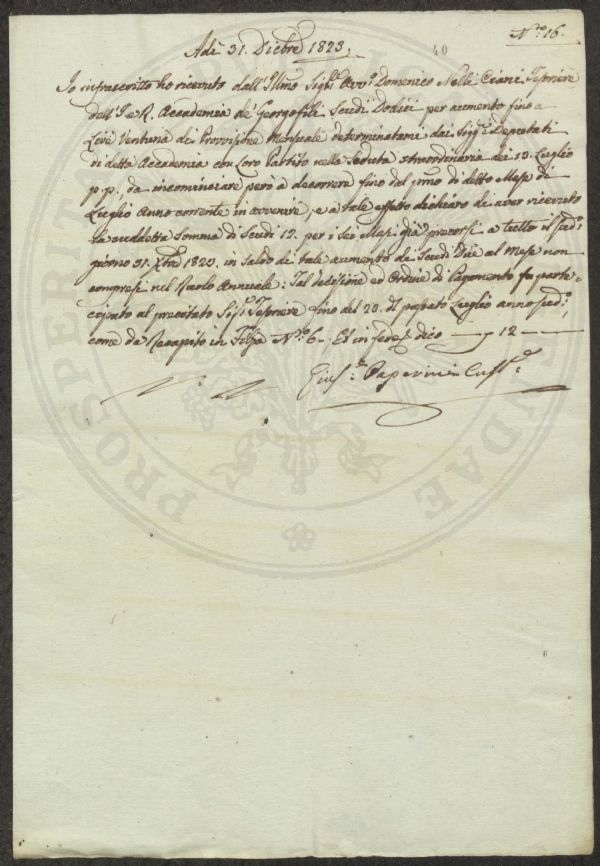 N.° 16.
Adì 31. Dicbre 1823.
40
Io infrascritto ho ricevuto dall' Illmo Sig.r Avv.o Domenico Nelli Ciani Tesoriere
dell' I. e R. Accademia de' Georgofili Scudi Dodici per aumento fino a
Lire Ventuna di Provvisione Mensuale determinatami dai Sigg.i Deputati
di detta Accademia con Loro Partito nella Seduta straordinaria dei 13. Luglio
p.p., da incominciare però a decorrere fino dal pmo di detto Mese di
Luglio Anno corrente in avvenire, e a tale effetto dichiaro di aver ricevuto
la suddetta Somma di Scudi 12. per i sei Mesi già decorsi a tutto il sud.o
giorno 31. Xbre 1823. in saldo di tale aumento di Scudi Due al Mese non
compresi nel Ruolo Annuale: Tal decisione ed Ordine di Pagamento fu parte-
cipato al precitato Sig.r Tesoriere fino del 20. di passato Luglio anno sud.o,
come da Recapito in Filza N.° 6 -, Ed in fede dico — 12 —
Gius.e Paperini Cust.e
PROSPERITATI
AUGENDAE